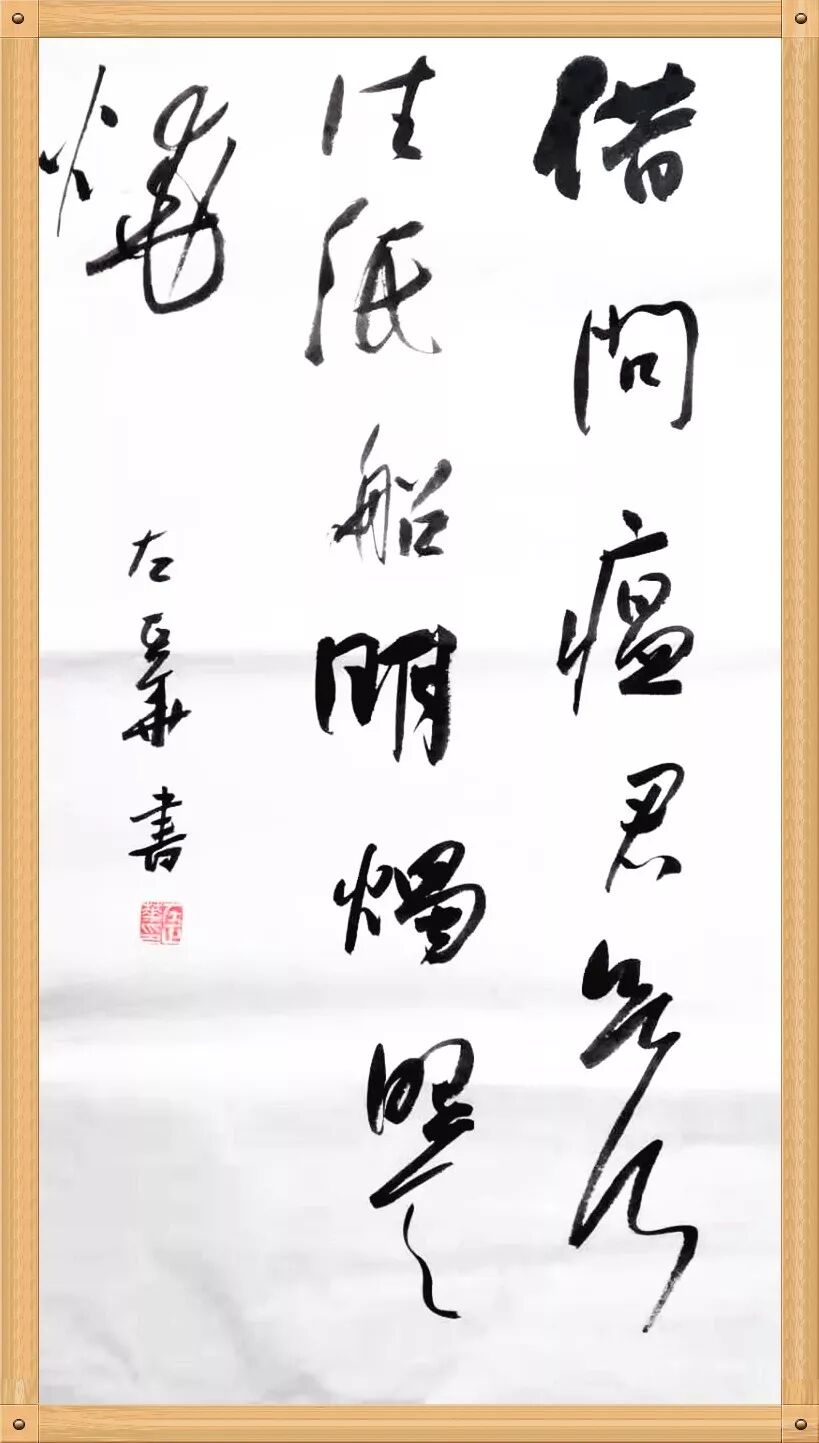 借問瘟君欲何
往紙船明燭照天
燒
左正華書